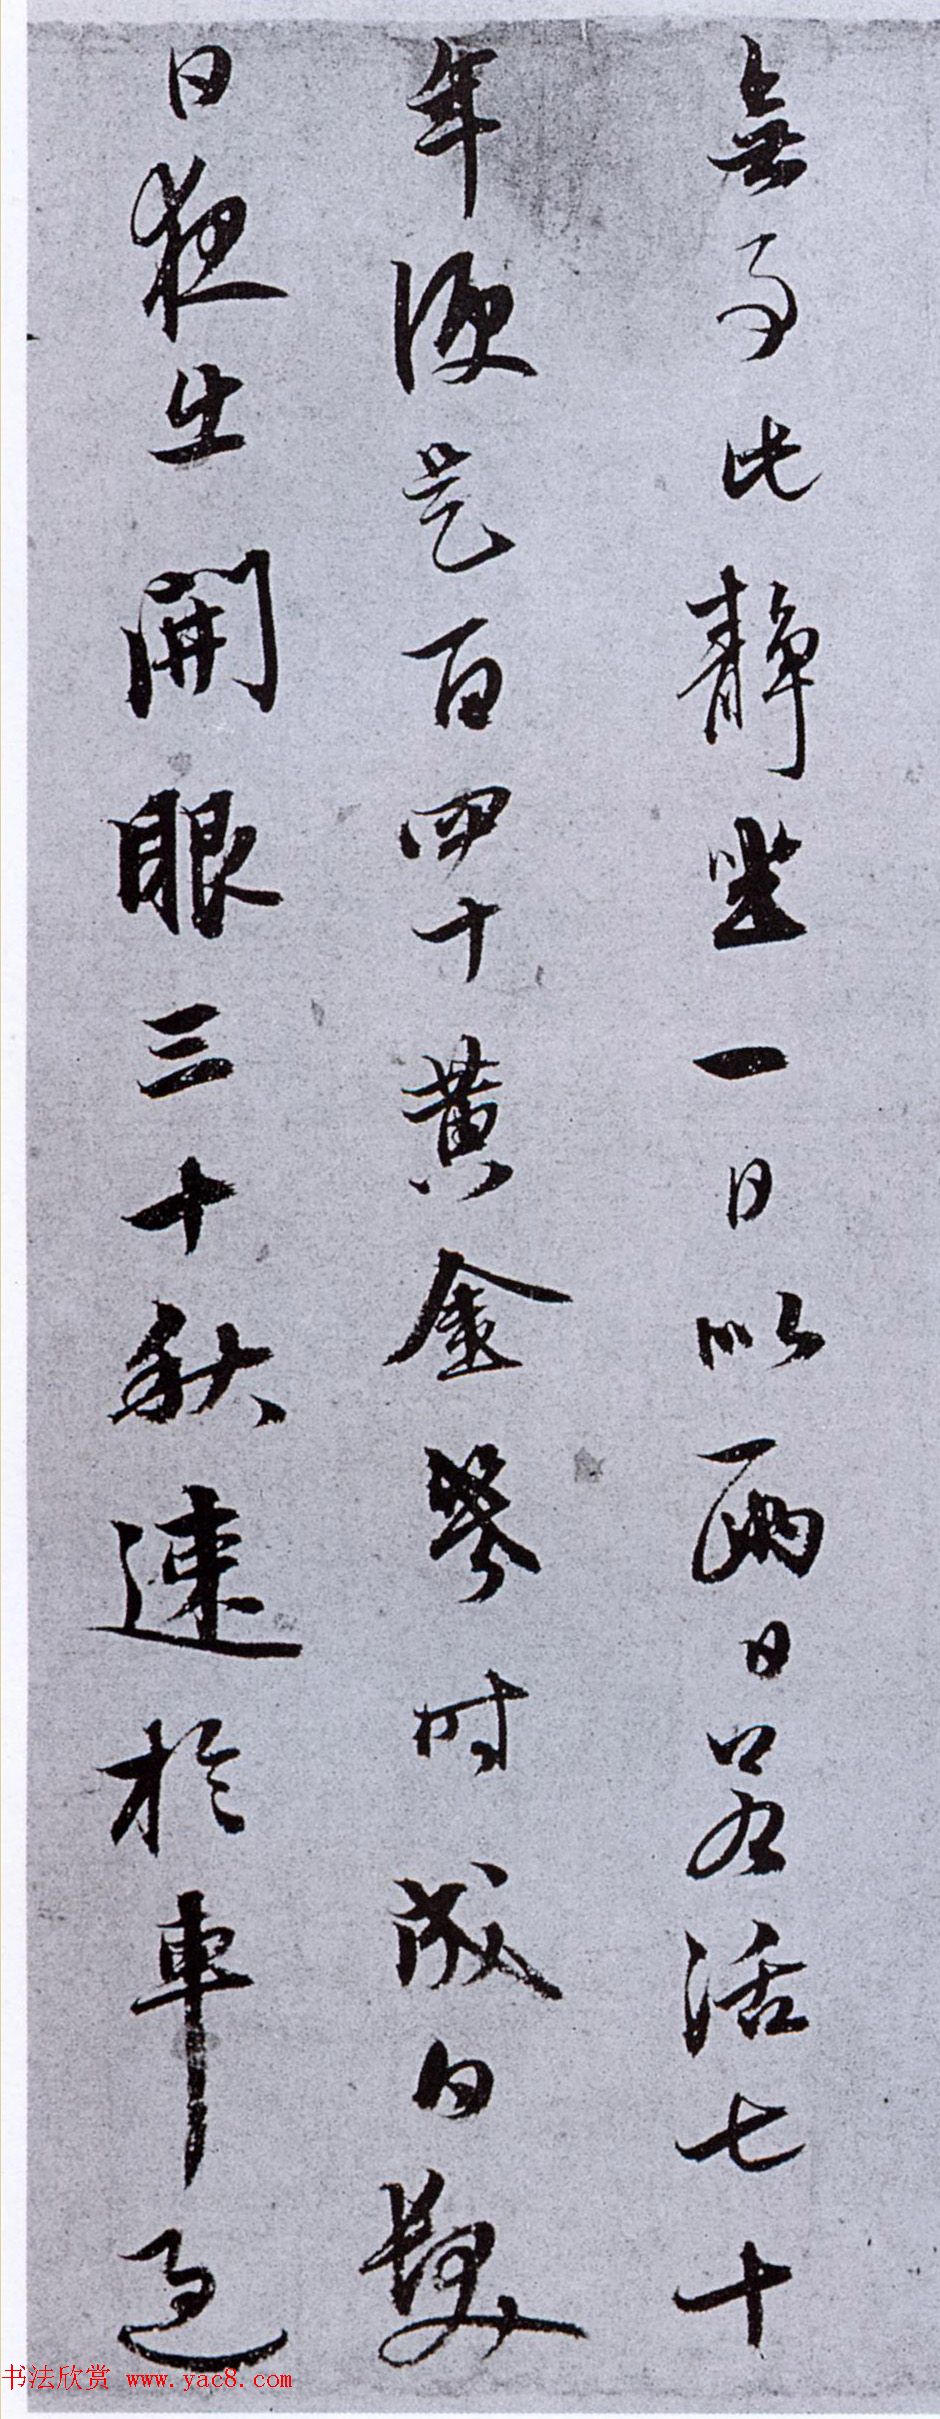 無事此靜坐一日似兩日若活七十
年便是百四十黃金幾時成白髮
日夜生開眼三十秋速於車過
书法欣赏 www.yac8.com